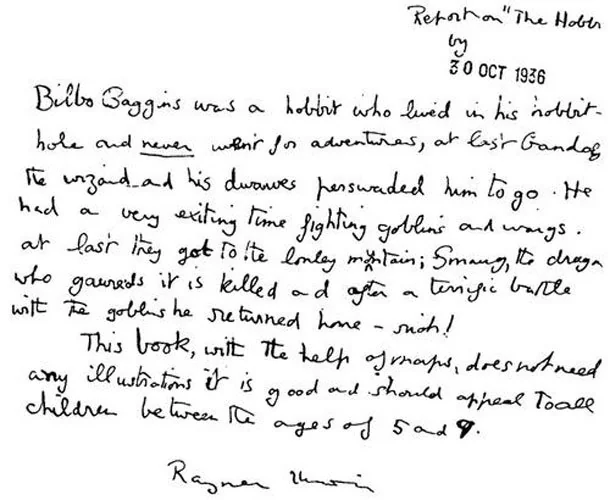 Report on "The Hobb
by
30 OCT 1936
Bilbo Baggins was a hobbit who lived in his hobbit-
hole and never went for adventures, at last Gandalf
the wizard and his dwarves perswaded him to go. He
had a very exiting time fighting goblins and wargs.
at last they got to the lonley mountain; Smaug, the dragon
who gaureds it is killed and after a terrific battle
with the goblins he returned home – rich!
This book, with the help of maps, does not need
any illustrations it is good and should appeal to all
children between the ages of 5 and 9.
Rayner Unwin